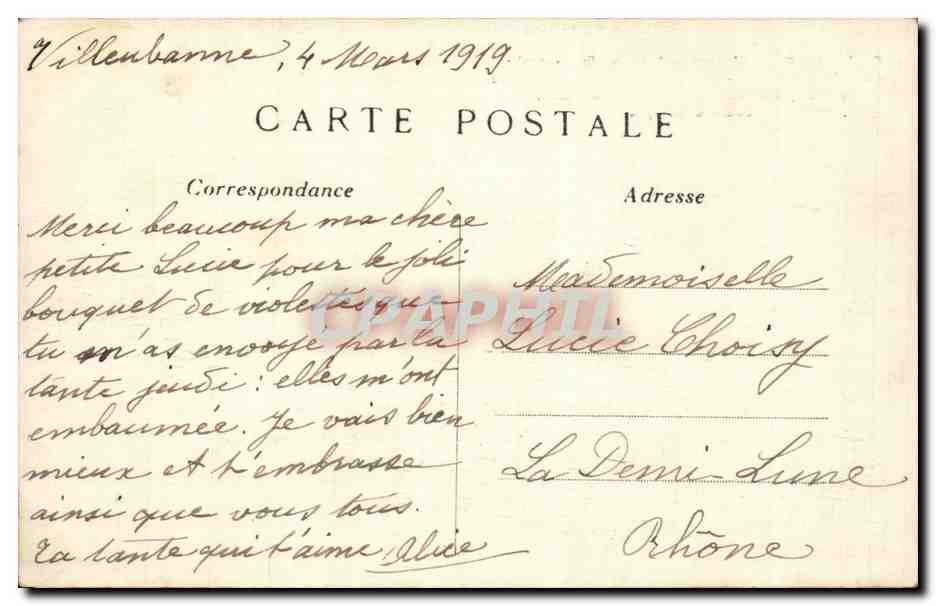 Villeurbanne, 4 Mars 1919.
CARTE POSTALE
Correspondance
Adresse
Merci beaucoup ma chère
petite Lucie pour le joli
bouquet de violettes que
tu m'as envoyé par la
tante jeudi : elles m'ont
embaumée. Je vais bien
mieux et t'embrasse
ainsi que vous tous.
Ta tante qui t'aime, Alice
Mademoiselle
Lucie Choisy
La Demi-Lune
Rhône
CPAPHIL